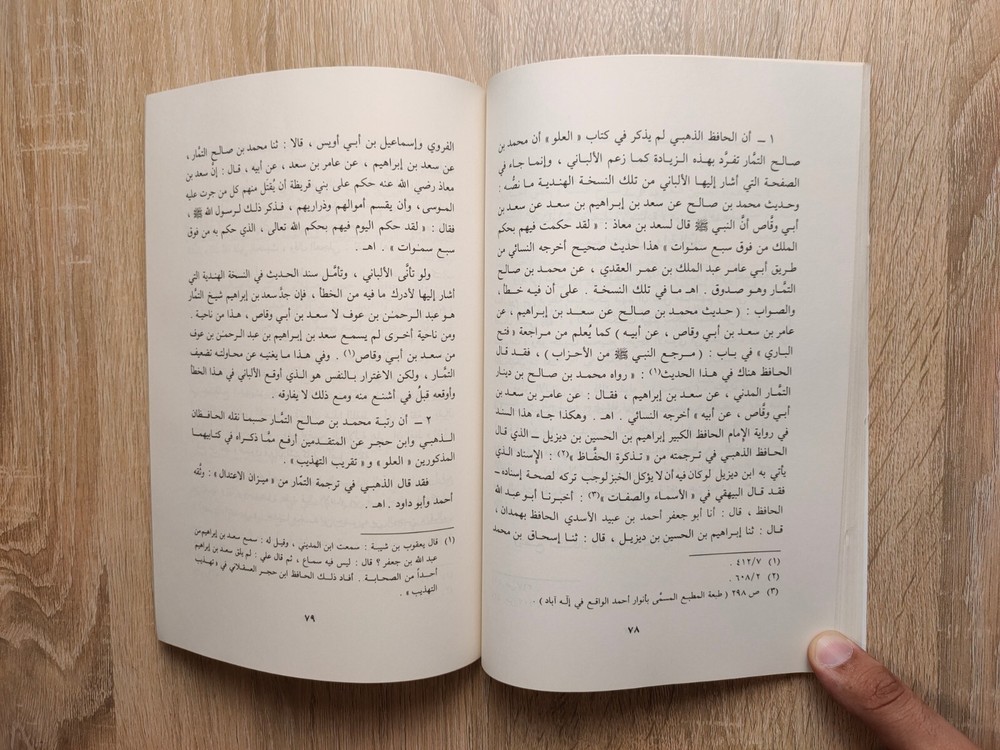 ١ ــ أن الحافظ الذهبي لم يذكر في كتاب « العلو » أن محمد بن
صالح التمَّار تفرَّد بهذه الزيادة كما زعم الألباني ، وإنما جاء في
الصفحة التي أشار إليها الألباني من تلك النسخة الهندية ما نصُّه :
وحديث محمد بن صالح عن سعد بن إبراهيم بن سعد عن سعد بن
أبي وقَّاص أنَّ النبي ﷺ قال لسعد بن معاذ : « لقد حكمت فيهم بحكم
الملك من فوق سبع سمنوات » هذا حديث صحيح أخرجه النسائي من
طريق أبي عامر عبد الملك بن عمر العقدي ، عن محمد بن صالح
التمَّار وهو صدوق . اهـ ما في تلك النسخة . على أن فيه خطأ ،
والصواب : ( حديث محمد بن صالح عن سعد بن إبراهيم ، عن
عامر بن سعد بن أبي وقاص ، عن أبيه ) كما يُعلم من مراجعة « فتح
الباري » في باب : ( مرجع النبي ﷺ من الأحزاب ) ، فقد قال
الحافظ هناك في هذا الحديث(١) : « رواه محمد بن صالح بن دينار
التمَّار المدني ، عن سعد بن إبراهيم ، فقال : عن عامر بن سعد بن
أبي وقَّاص ، عن أبيه » أخرجه النسائي . اهـ . وهكذا جاء هذا السند
في رواية الإمام الحافظ الكبير إبراهيم بن الحسين بن ديزيل ــ الذي قال
الحافظ الذهبي في ترجمته من « تذكرة الحفَّاظ »(٢) : الإسناد الذي
يأتي به ابن ديزيل لو كان فيه أن لا يؤكل الخبز لوجب تركه لصحة إسناده ــ
فقد قال البيهقي في « الأسماء والصفات »(٣) : أخبرنا أبو عبد الله
الحافظ ، قال : أنا أبو جعفر أحمد بن عبيد الأسدي الحافظ بهمدان ،
قال : ثنا إبراهيم بن الحسين بن ديزيل ، قال : ثنا إسحاق بن محمد
(١) ٤١٢/٧ .
(٢) ٦٠٨/٢ .
(٣) ص ٢٩٨ ( طبعة المطبع المسمَّى بأنوار أحمد الواقع في إلـٰه آباد ) .
٧٨
الفروي وإسماعيل بن أبي أويس ، قالا : ثنا محمد بن صالح التمَّار ،
عن سعد بن إبراهيم ، عن عامر بن سعد ، عن أبيه ، قال : إنَّ سعد بن
معاذ رضي الله عنه حكم على بني قريظة أن يُقتل منهم كل من جرت عليه
الموسى ، وأن يقسم أموالهم وذراريهم ، فذكر ذلك لرسول الله ﷺ ،
فقال : « لقد حكم اليوم فيهم بحكم الله تعالى ، الذي حكم به من فوق
سبع سمنوات » . اهـ .
ولو تأنَّى الألباني ، وتأمَّل سند الحديث في النسخة الهندية التي
أشار إليها لأدرك ما فيه من الخطأ ، فإن جدَّ سعد بن إبراهيم شيخ التمَّار
هو عبد الرحمٰن بن عوف لا سعد بن أبي وقاص ، هذا من ناحية .
ومن ناحية أخرى لم يسمع سعد بن إبراهيم بن عبد الرحمٰن بن عوف
من سعد بن أبي وقاص(١) . وفي هذا ما يغنيه عن محاولته تضعيف
التمَّار ، ولكن الاغترار بالنفس هو الذي أوقع الألباني في هذا الخطأ
وأوقعه قبلُ في أشنع منه ومع ذلك لا يفارقه .
٢ ــ أن رتبة محمد بن صالح التمَّار حسبما نقله الحافظان
الذهبي وابن حجر عن المتقدمين أرفع ممَّا ذكراه في كتابيهما
المذكورين « العلو » و « تقريب التهذيب » .
فقد قال الذهبي في ترجمة التمّار من « ميزان الاعتدال » : وثَّقه
أحمد وأبو داود . اهـ .
(١) قال يعقوب بن شيبة : سمعت ابن المديني ، وقيل له : سمع سعد بن إبراهيم من
عبد الله بن جعفر ؟ قال : ليس فيه سماع ، ثم قال علي : لم يلق سعد بن إبراهيم
أحداً من الصحابة . أفاد ذلك الحافظ ابن حجر العسقلاني في « تهذيب
التهذيب » .
٧٩